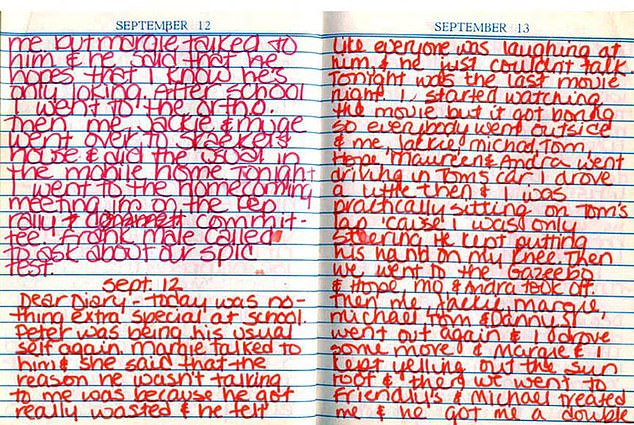 SEPTEMBER 12
me but margie talked to
him & he said that he
hopes that I know he's
only joking. After school
I went to the ortho.
Then me Jackie & muge
went over to
house & did the usual in
the mobile home Tonight
I went to the homecoming
meeting im on the pep
rally & commit-
tee. Frank male called
to ask about our spic
test.
Sept. 12
Dear Diary - today was no-
thing extra special at school.
Peter was being his usual
self again Margie talked to
him & she said that the
reason he wasn't talking
to me was because he got
really wasted & he felt
SEPTEMBER 13
like everyone was laughing at
him & he just couldn't talk
Tonight was the last movie
night. I started watching
the movie but it got boring
so everybody went outside
& me, Jackie, michael, Tom,
Hope, Maureen & Andra went
driving in Tom's car I drove
a little then & I was
practically sitting on Tom's
lap 'cause I was only
steering. He kept putting
his hand on my knee. Then
we went to the Gazeebo
& Hope, Mo & Andra took off.
then me Jackie, margie,
michael Tom & Danny
went out again & I drove
some more & Margie & I
kept yelling out the sun
roof & then we went to
Friendly's & Michael treated
me & he got me a double